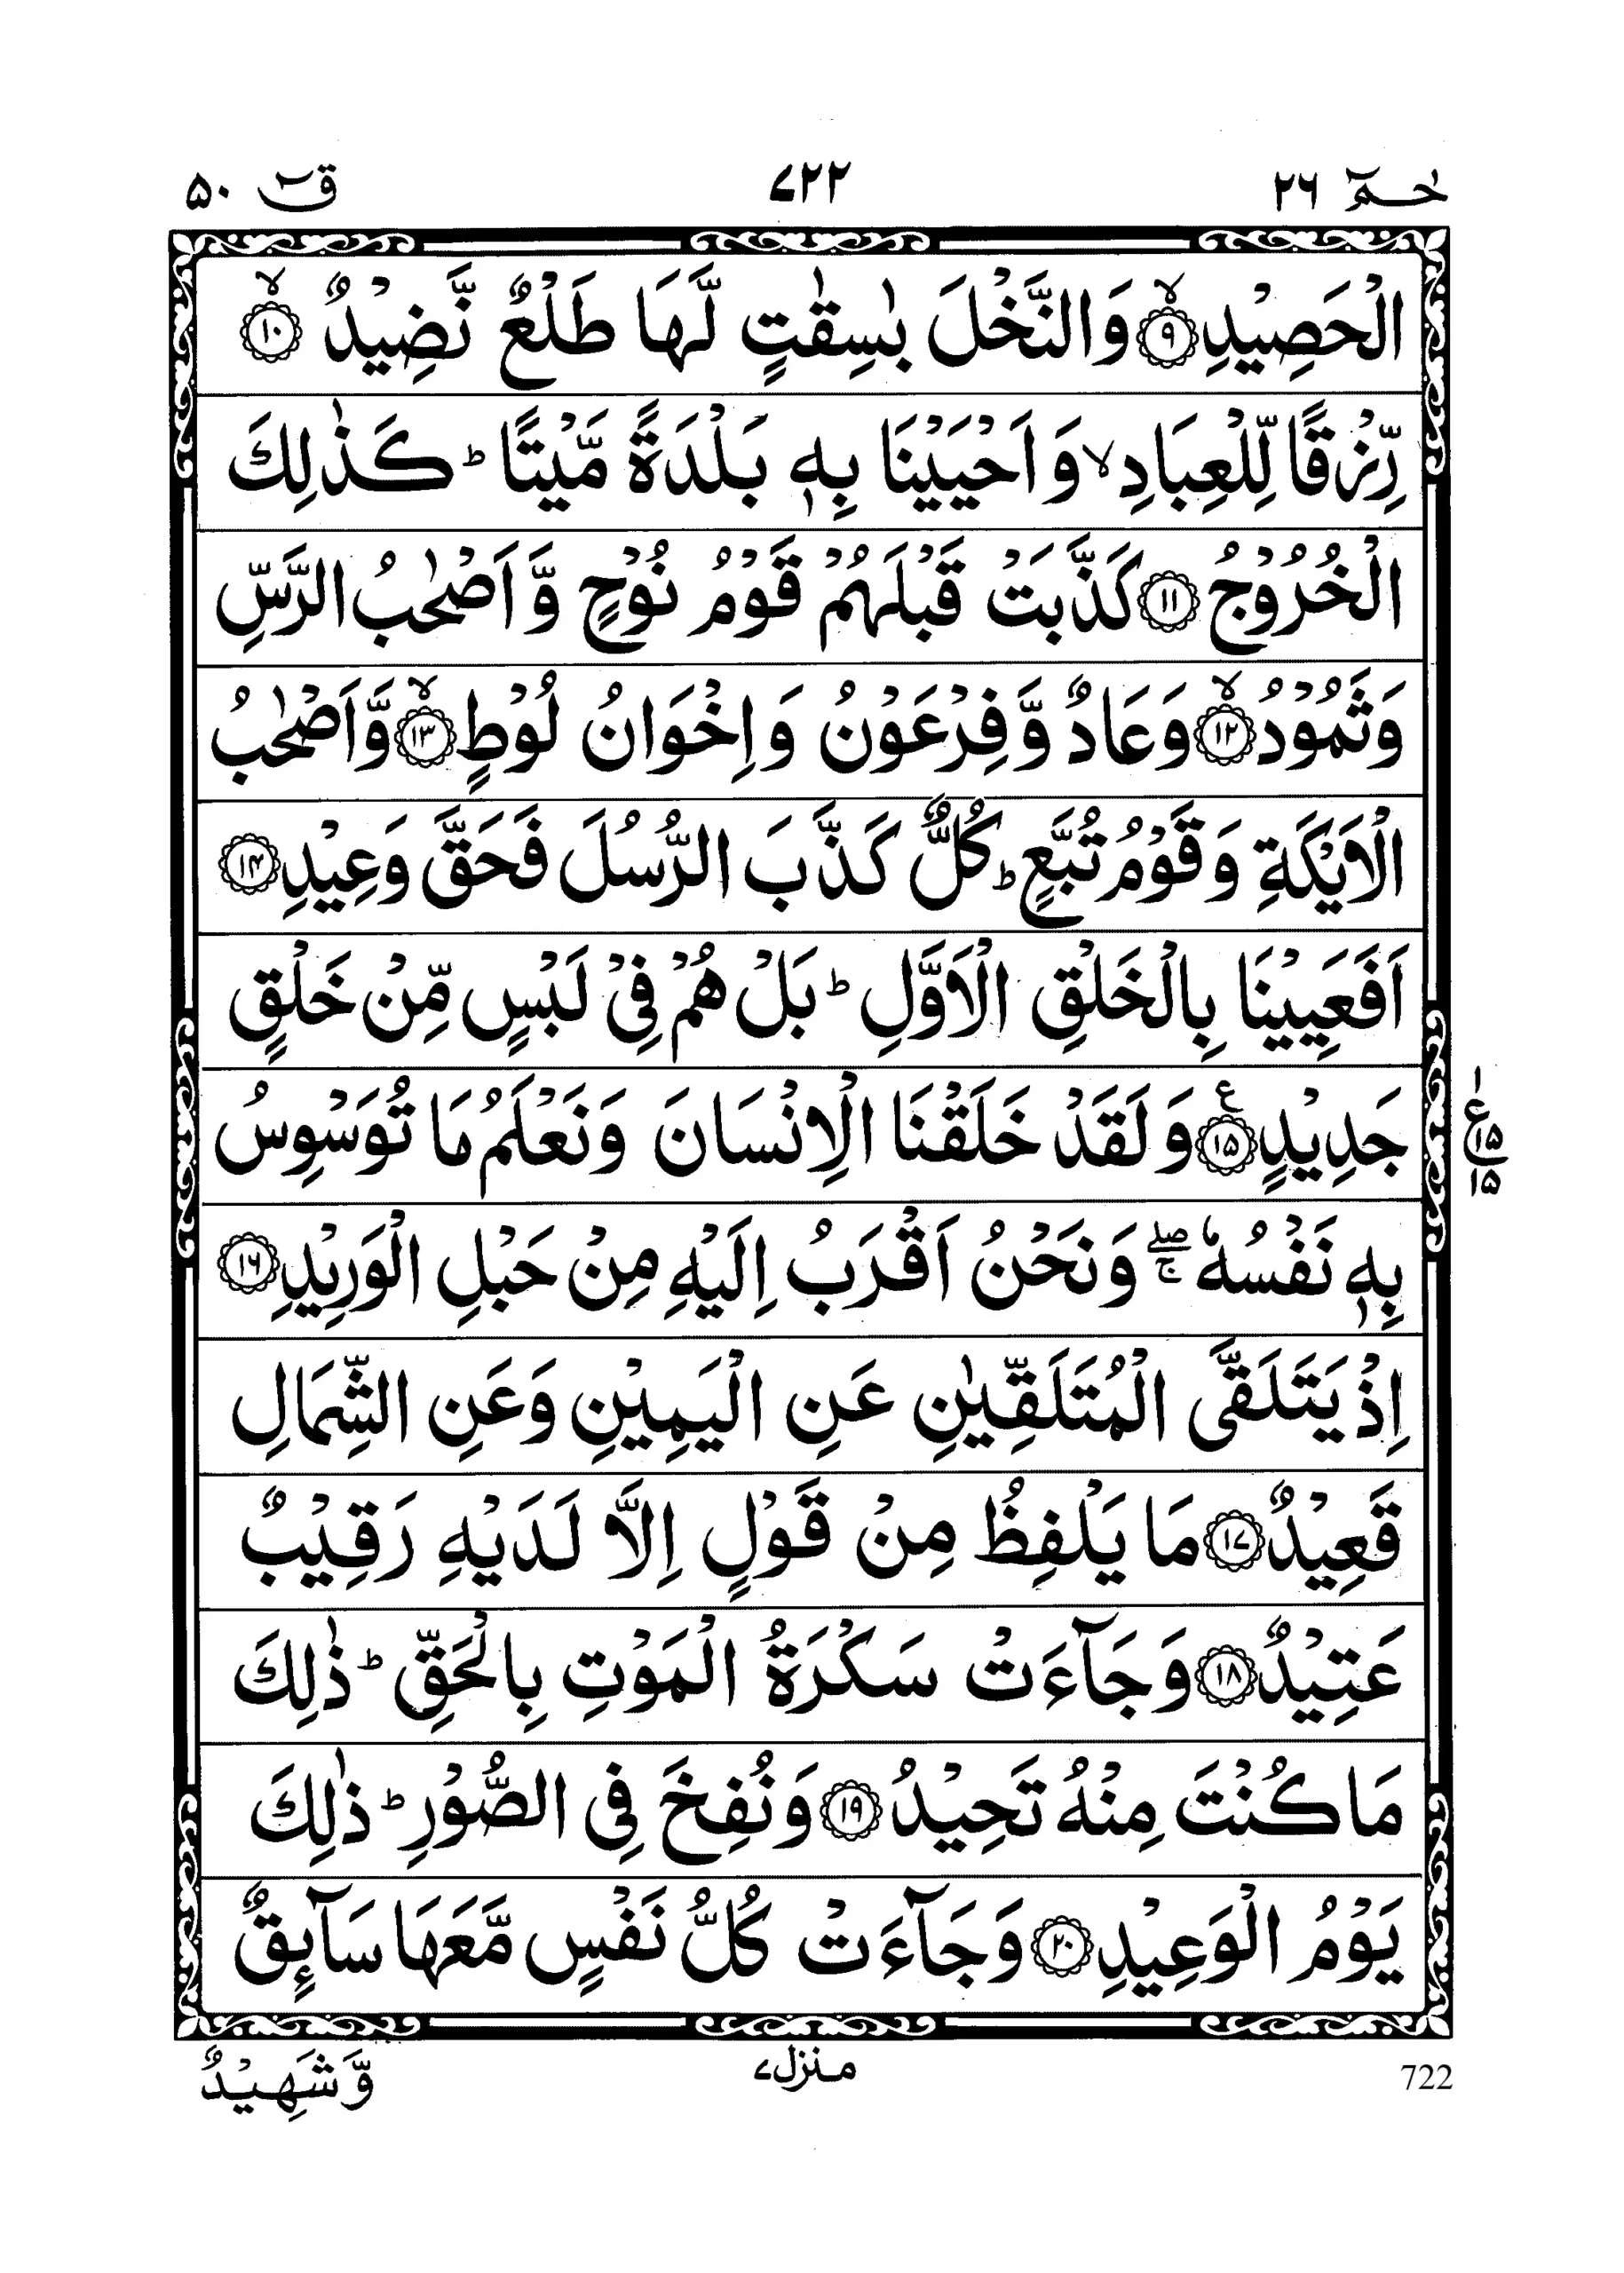 حٰمٓ ٢٦ ٧٢٢ قٓ ٥٠
الْحَصِيْدِ ۙ﴿٩﴾ وَالنَّخْلَ بٰسِقٰتٍ لَّهَا طَلْعٌ نَّضِيْدٌ ۙ﴿١٠﴾
رِّزْقًا لِّلْعِبَادِ ۙ وَاَحْيَيْنَا بِهٖ بَلْدَةً مَّيْتًا ؕ كَذٰلِكَ
الْخُرُوْجُ ﴿١١﴾ كَذَّبَتْ قَبْلَهُمْ قَوْمُ نُوْحٍ وَّاَصْحٰبُ الرَّسِّ
وَثَمُوْدُ ۙ﴿١٢﴾ وَعَادٌ وَّفِرْعَوْنُ وَاِخْوَانُ لُوْطٍ ۙ﴿١٣﴾ وَّاَصْحٰبُ
الْاَيْكَةِ وَقَوْمُ تُبَّعٍ ؕ كُلٌّ كَذَّبَ الرُّسُلَ فَحَقَّ وَعِيْدِ ﴿١٤﴾
اَفَعَيِيْنَا بِالْخَلْقِ الْاَوَّلِ ؕ بَلْ هُمْ فِيْ لَبْسٍ مِّنْ خَلْقٍ
جَدِيْدٍ ۧ﴿١٥﴾ وَلَقَدْ خَلَقْنَا الْاِنْسَانَ وَنَعْلَمُ مَا تُوَسْوِسُ
١ ع ١٥ ١٥
بِهٖ نَفْسُهٗ ۖۚ وَنَحْنُ اَقْرَبُ اِلَيْهِ مِنْ حَبْلِ الْوَرِيْدِ ﴿١٦﴾
اِذْ يَتَلَقَّى الْمُتَلَقِّيٰنِ عَنِ الْيَمِيْنِ وَعَنِ الشِّمَالِ
قَعِيْدٌ ﴿١٧﴾ مَا يَلْفِظُ مِنْ قَوْلٍ اِلَّا لَدَيْهِ رَقِيْبٌ
عَتِيْدٌ ﴿١٨﴾ وَجَآءَتْ سَكْرَةُ الْمَوْتِ بِالْحَقِّ ؕ ذٰلِكَ
مَا كُنْتَ مِنْهُ تَحِيْدُ ﴿١٩﴾ وَنُفِخَ فِي الصُّوْرِ ؕ ذٰلِكَ
يَوْمُ الْوَعِيْدِ ﴿٢٠﴾ وَجَآءَتْ كُلُّ نَفْسٍ مَّعَهَا سَآئِقٌ
722 منزل ٧ وَّشَهِيْدٌ